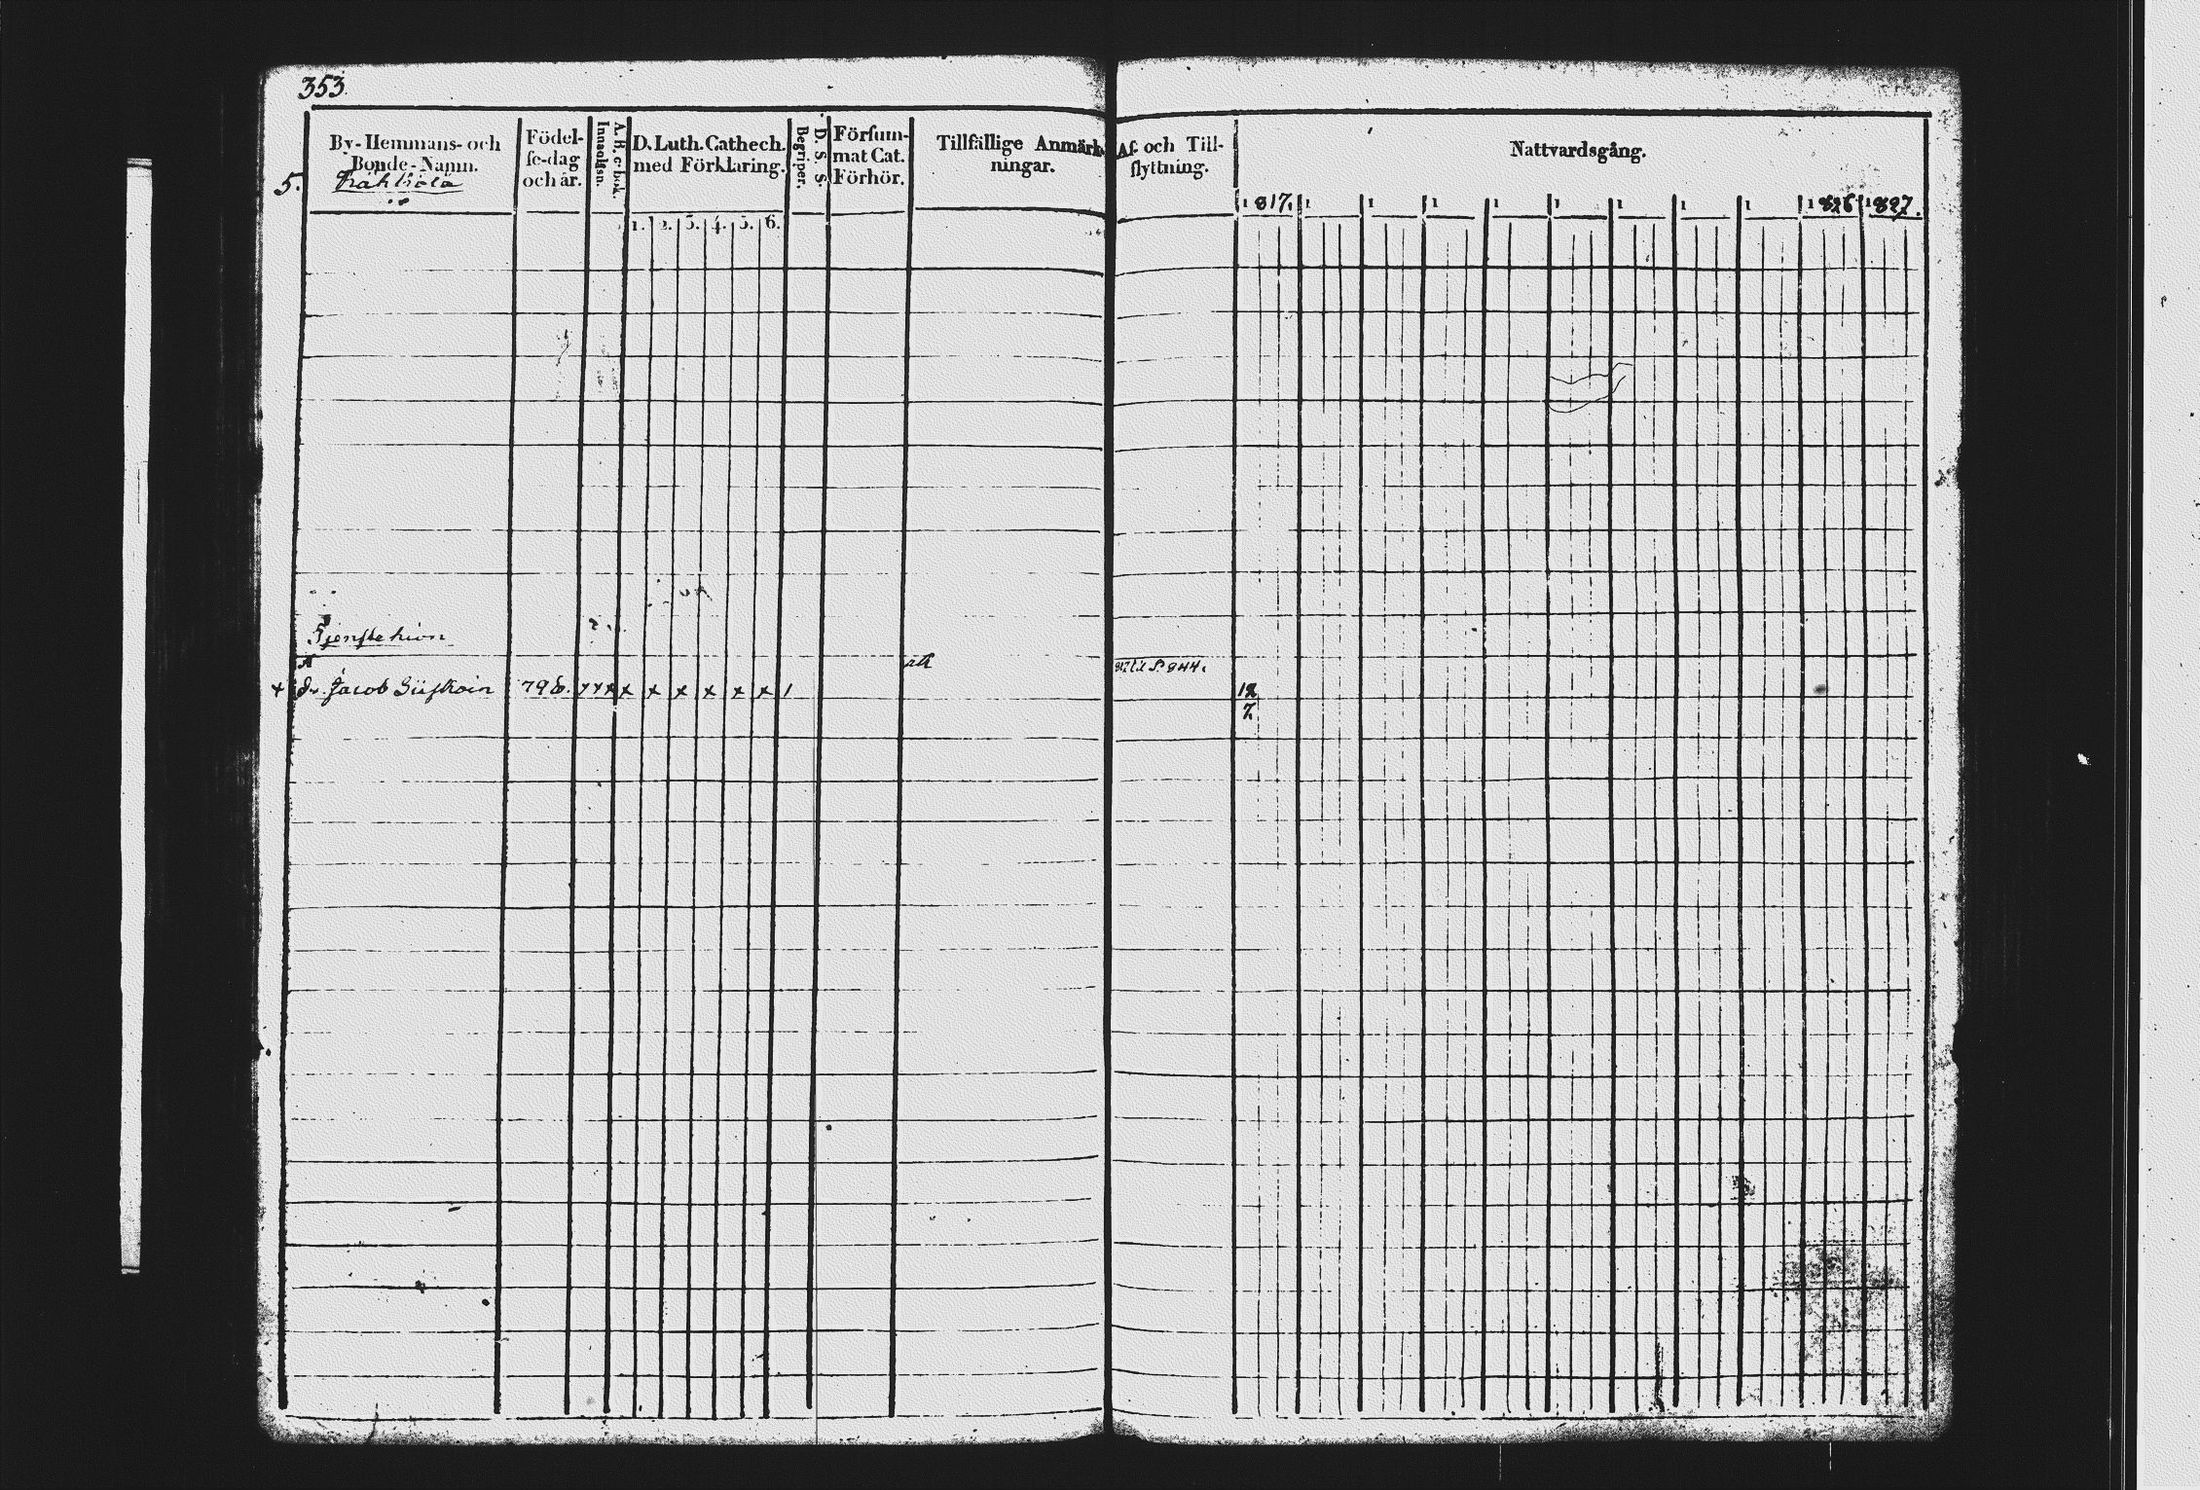 353
By-Hemmans- och Bonde-Namn.
Födel-se-dag och år.
A. B. c. bok. Innanläsn.
D. Luth. Cathech. med Förklaring.
D. S. S. Begriper.
Försum-mat Cat. Förhör.
Tillfällige Anmärk-ningar.
Af- och Till-flyttning.
Nattvardsgång.
5.
1817. 1 1 1 1 1 1 1 1 1826 1827.
1. 2. 3. 4. 5. 6.
Tjenstehion
+ dr. Jacob 796. x x x x x x x x x 1
12
7.